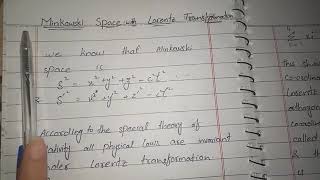 Minkowski Space with Lorentz Transformation
we know that Minkowski
space is
S² = x² + y² + y² - c²t²
S'² = x'² + y'² + z'² - c²t'²
According to the special theory of
relativity all physical laws are invariant
under Lorentz transformation.
This show
co-ordin
Lorentz